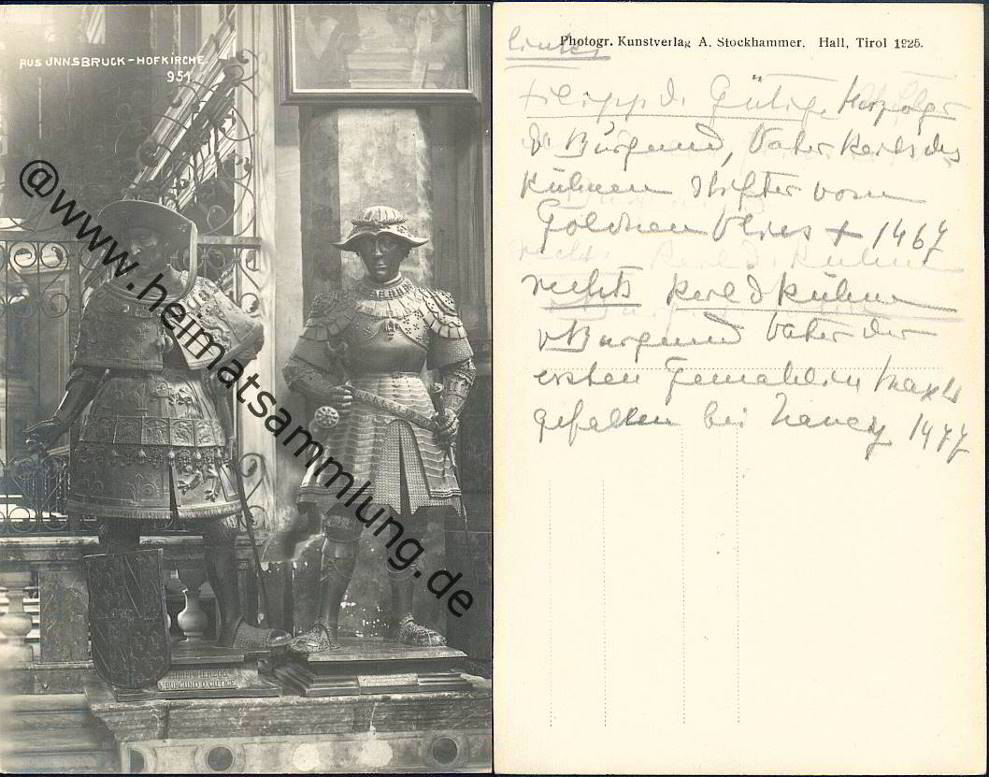 AUS JNNSBRUCK-HOFKIRCHE.
951
@www.heimatsammlung.de
HERZOG
BURGUND D GUTIGE
Photogr. Kunstverlag A. Stockhammer. Hall, Tirol 1925.
links
Filipp d. Gütige Herzog
v. Burgund, Vater Karls des
Kühnen Stifter vom
Goldnen Vlies + 1467
rechts Karl d Kühne
v Burgund Vater der
ersten Gemahlin Max I.
gefallen bei Nancy 1477